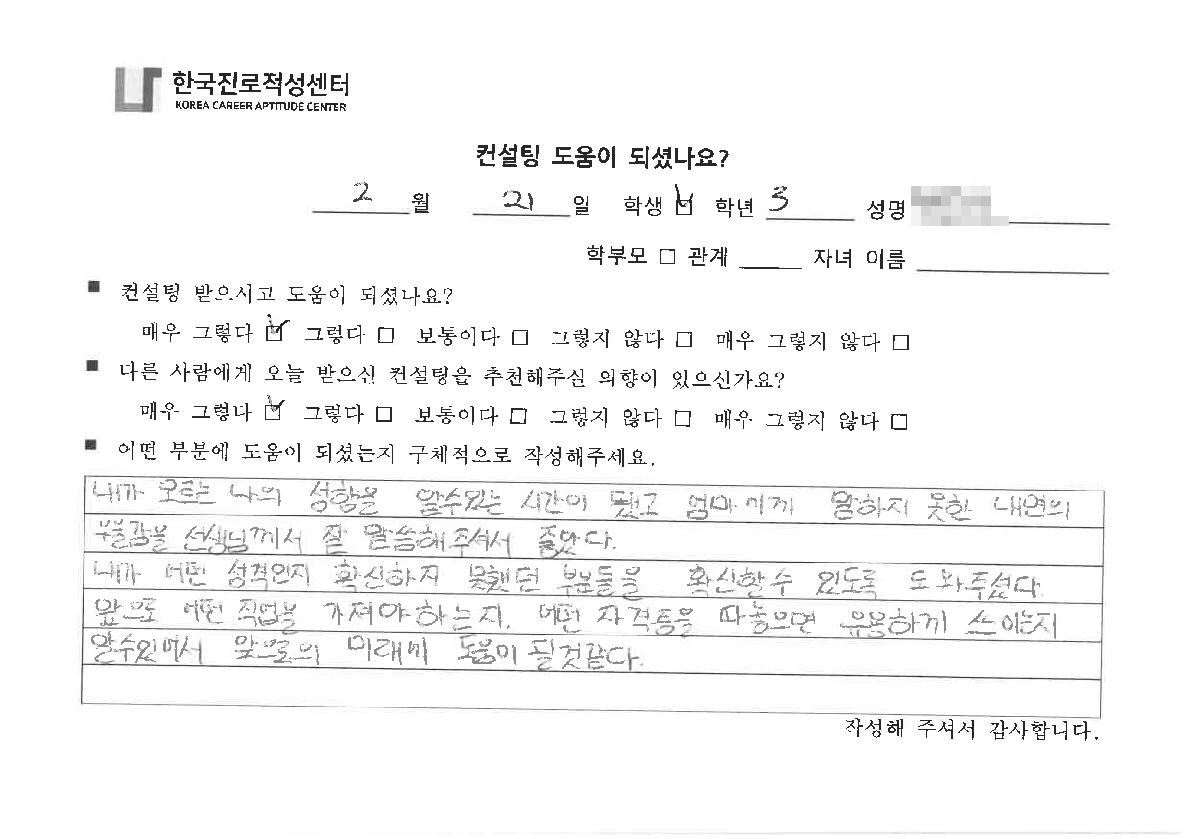 한국진로적성센터
KOREA CAREER APTITUDE CENTER
컨설팅 도움이 되셨나요?
2 월 21 일 학생 ☑ 학년 3 성명
학부모 □ 관계 자녀 이름
■ 컨설팅 받으시고 도움이 되셨나요?
매우 그렇다 ☑ 그렇다 □ 보통이다 □ 그렇지 않다 □ 매우 그렇지 않다 □
■ 다른 사람에게 오늘 받으신 컨설팅을 추천해주실 의향이 있으신가요?
매우 그렇다 ☑ 그렇다 □ 보통이다 □ 그렇지 않다 □ 매우 그렇지 않다 □
■ 어떤 부분에 도움이 되셨는지 구체적으로 작성해주세요.
내가 모르는 나의 성향을 알수있는 시간이 됐고 엄마에게 말하지 못한 내면의
부분감을 선생님께서 잘 말씀해주셔서 좋았다.
내가 어떤 성격인지 확신하지 못했던 부분들을 확신할수 있도록 도와주셨다.
앞으로 어떤 직업을 가져야하는지, 어떤 자격증을 따놓으면 유용하게 쓰이는지
알수있어서 앞으로의 미래에 도움이 될것같다.
작성해 주셔서 감사합니다.